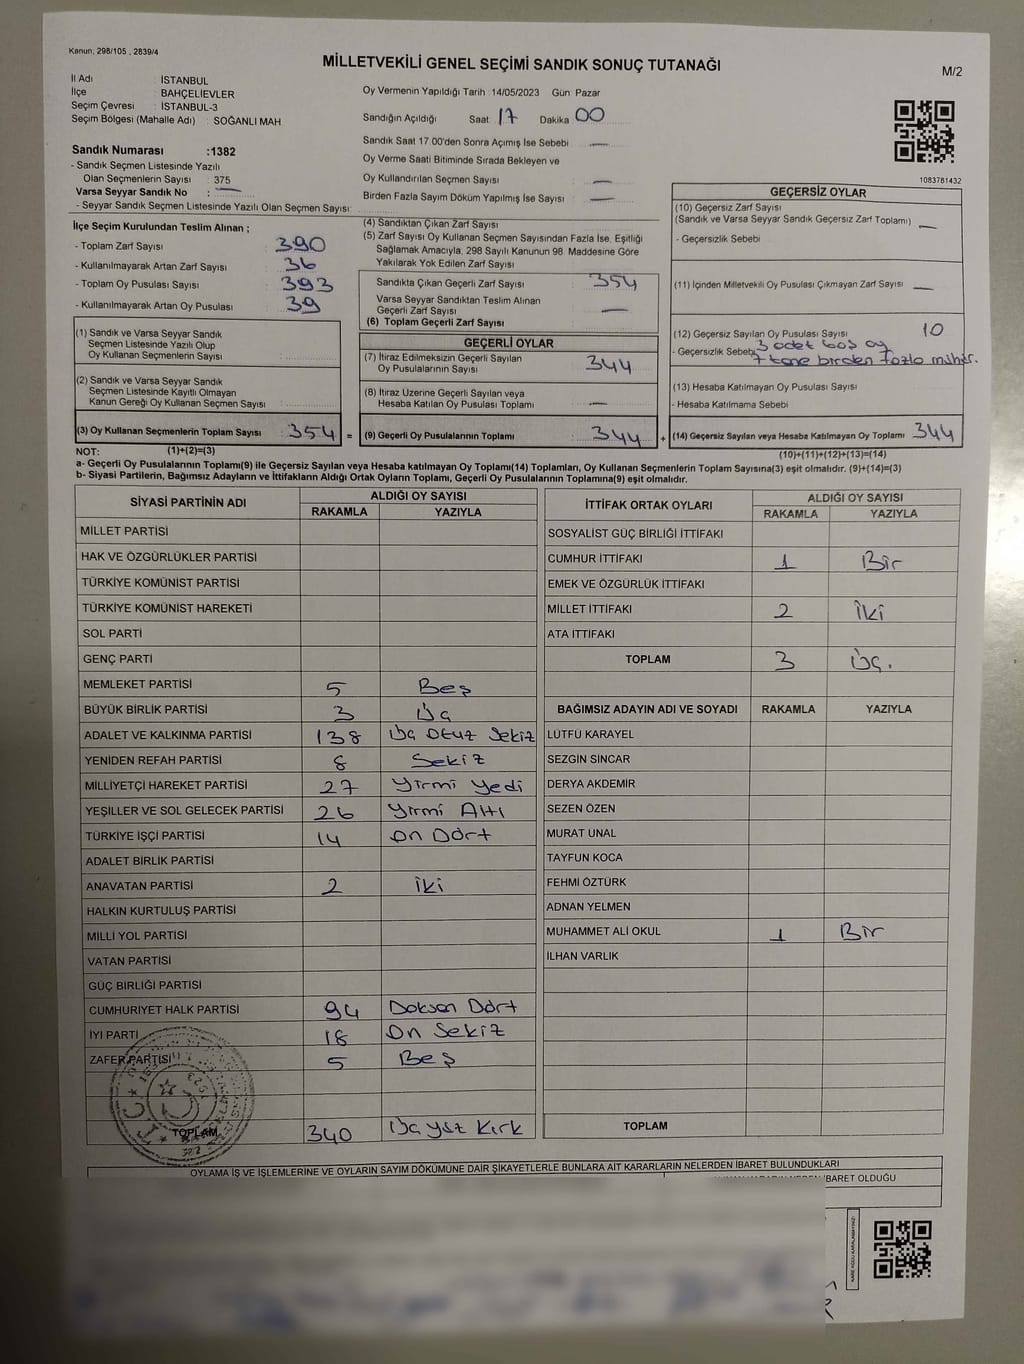 Kanun; 298/105 , 2839/4
MİLLETVEKİLİ GENEL SEÇİMİ SANDIK SONUÇ TUTANAĞI
M/2
İl Adı : İSTANBUL
İlçe : BAHÇELİEVLER
Seçim Çevresi : İSTANBUL-3
Seçim Bölgesi (Mahalle Adı) : SOĞANLI MAH
Sandık Numarası :1382
- Sandık Seçmen Listesinde Yazılı
Olan Seçmenlerin Sayısı : 375
Varsa Seyyar Sandık No : —
- Seyyar Sandık Seçmen Listesinde Yazılı Olan Seçmen Sayısı:
Oy Vermenin Yapıldığı Tarih :14/05/2023 Gün: Pazar
Sandığın Açıldığı Saat 17 Dakika 00
Sandık Saat 17.00'den Sonra Açımış İse Sebebi : —
Oy Verme Saati Bitiminde Sırada Bekleyen ve
Oy Kullandırılan Seçmen Sayısı : —
Birden Fazla Sayım Döküm Yapılmış İse Sayısı : —
1083781432
İlçe Seçim Kurulundan Teslim Alınan ;
- Toplam Zarf Sayısı : 390
- Kullanılmayarak Artan Zarf Sayısı : 36
- Toplam Oy Pusulası Sayısı : 393
- Kullanılmayarak Artan Oy Pusulası : 39
(1) Sandık ve Varsa Seyyar Sandık
Seçmen Listesinde Yazılı Olup
Oy Kullanan Seçmenlerin Sayısı :
(2) Sandık ve Varsa Seyyar Sandık
Seçmen Listesinde Kayıtlı Olmayan
Kanun Gereği Oy Kullanan Seçmen Sayısı :
(3) Oy Kullanan Seçmenlerin Toplam Sayısı : 354 =
(4) Sandıktan Çıkan Zarf Sayısı :
(5) Zarf Sayısı Oy Kullanan Seçmen Sayısından Fazla İse, Eşitliği
Sağlamak Amacıyla, 298 Sayılı Kanunun 98. Maddesine Göre
Yakılarak Yok Edilen Zarf Sayısı
Sandıkta Çıkan Geçerli Zarf Sayısı : 354
Varsa Seyyar Sandıktan Teslim Alınan
Geçerli Zarf Sayısı : —
(6) Toplam Geçerli Zarf Sayısı :
GEÇERLİ OYLAR
(7) İtiraz Edilmeksizin Geçerli Sayılan
Oy Pusulalarının Sayısı : 344
(8) İtiraz Üzerine Geçerli Sayılan veya
Hesaba Katılan Oy Pusulası Toplamı : —
(9) Geçerli Oy Pusulalarının Toplamı : 344 +
GEÇERSİZ OYLAR
(10) Geçersiz Zarf Sayısı
(Sandık ve Varsa Seyyar Sandık Geçersiz Zarf Toplamı) —
- Geçersizlik Sebebi :
(11) İçinden Milletvekili Oy Pusulası Çıkmayan Zarf Sayısı —
(12) Geçersiz Sayılan Oy Pusulası Sayısı 10
- Geçersizlik Sebebi: 3 adet boş oy
7 tane birden fazla mühür.
(13) Hesaba Katılmayan Oy Pusulası Sayısı
- Hesaba Katılmama Sebebi :
(14) Geçersiz Sayılan veya Hesaba Katılmayan Oy Toplamı 344
NOT: (1)+(2)=(3)
(10)+(11)+(12)+(13)=(14)
a- Geçerli Oy Pusulalarının Toplamı(9) ile Geçersiz Sayılan veya Hesaba katılmayan Oy Toplamı(14) Toplamları, Oy Kullanan Seçmenlerin Toplam Sayısına(3) eşit olmalıdır. (9)+(14)=(3)
b- Siyasi Partilerin, Bağımsız Adayların ve İttifakların Aldığı Ortak Oyların Toplamı, Geçerli Oy Pusulalarının Toplamına(9) eşit olmalıdır.
SİYASİ PARTİNİN ADI ALDIĞI OY SAYISI
RAKAMLA YAZIYLA
MİLLET PARTİSİ
HAK VE ÖZGÜRLÜKLER PARTİSİ
TÜRKİYE KOMÜNİST PARTİSİ
TÜRKİYE KOMÜNİST HAREKETİ
SOL PARTİ
GENÇ PARTİ
MEMLEKET PARTİSİ 5 Beş
BÜYÜK BİRLİK PARTİSİ 3 Üç
ADALET VE KALKINMA PARTİSİ 138 Üç Otuz Sekiz
YENİDEN REFAH PARTİSİ 8 Sekiz
MİLLİYETÇİ HAREKET PARTİSİ 27 Yirmi Yedi
YEŞİLLER VE SOL GELECEK PARTİSİ 26 Yirmi Altı
TÜRKİYE İŞÇİ PARTİSİ 14 On Dört
ADALET BİRLİK PARTİSİ
ANAVATAN PARTİSİ 2 İki
HALKIN KURTULUŞ PARTİSİ
MİLLİ YOL PARTİSİ
VATAN PARTİSİ
GÜÇ BİRLİĞİ PARTİSİ
CUMHURİYET HALK PARTİSİ 94 Doksan Dört
İYİ PARTİ 18 On Sekiz
ZAFER PARTİSİ 5 Beş
TOPLAM 340 Üç yüz Kırk
İTTİFAK ORTAK OYLARI ALDIĞI OY SAYISI
RAKAMLA YAZIYLA
SOSYALİST GÜÇ BİRLİĞİ İTTİFAKI
CUMHUR İTTİFAKI 1 Bir
EMEK VE ÖZGÜRLÜK İTTİFAKI
MİLLET İTTİFAKI 2 İki
ATA İTTİFAKI
TOPLAM 3 Üç.
BAĞIMSIZ ADAYIN ADI VE SOYADI RAKAMLA YAZIYLA
LÜTFÜ KARAYEL
SEZGİN SİNCAR
DERYA AKDEMİR
SEZEN ÖZEN
MURAT UNAL
TAYFUN KOCA
FEHMİ ÖZTÜRK
ADNAN YELMEN
MUHAMMET ALİ OKUL 1 Bir
İLHAN VARLIK
TOPLAM
OYLAMA İŞ VE İŞLEMLERİNE VE OYLARIN SAYIM DÖKÜMÜNE DAİR ŞİKAYETLERLE BUNLARA AİT KARARLARIN NELERDEN İBARET BULUNDUKLARI
İBARET OLDUĞU